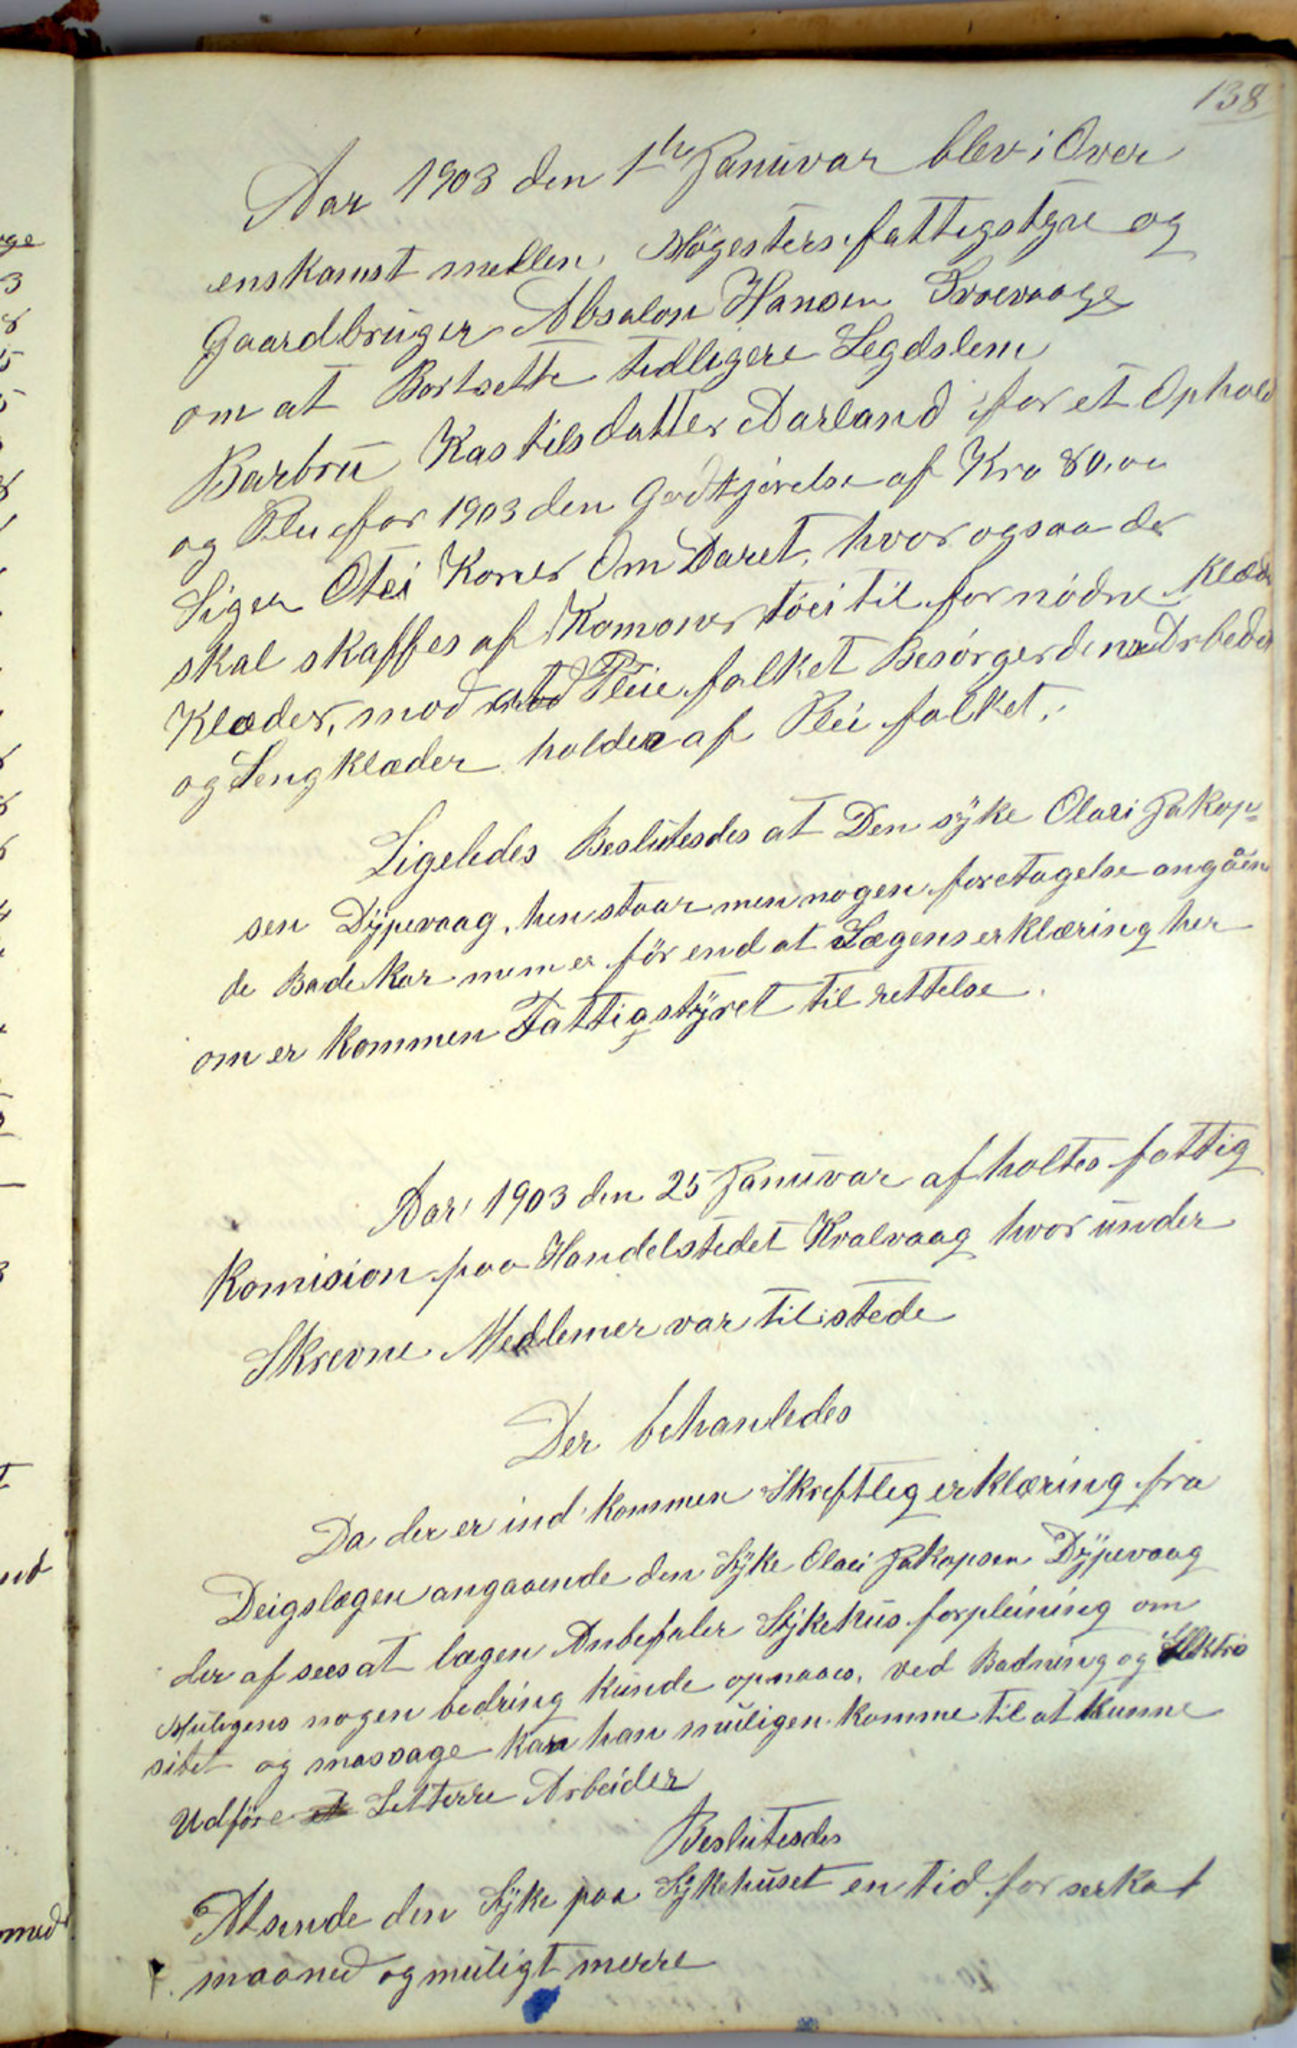 138
Aar 1903 den 1te Januvar blev i Over
enskomst mellen, Høgesters fattigstyre og
Gaardbruger Absalon Hansen
om at Bortsette tidligere Legdslem
Barbru Kastilsdatter Aarland for et Ophold
og Plei for 1903 den Godtgjørelse af Kro 80,00
Siger Otti Koner Om Aaret, hvor ogsaa der
skal skaffes af Komoner tøi til fornødne Klæde
Klæder, mod at Pleie folket Besørger dens Arbeide
og Sengklæder holdes af Plei folket.
Ligeledes Beslutesdes at Den syke Olai Jakop-
sen Dypevaag, henstaar men nogen foretagelse angåen
de Badekar før end at Lægens erklæring her
om er kommen Fattigstyret til rettelse.
Aar 1903 den 25 Januvar afholtes fattig
Komision paa Handelstedet Kvalvaag hvor under
Skrevne Medlemer var tilstede
Der behanledes
Da der er ind kommen Skreftlig erklæring fra
Deigslægen angaaende den Syke Olai Jakopsen Dypevaag
der af sees at lægen Anbefaler Sykehus forpleining om
Muligens nogen bedring kunde opnaaes, ved Badning og Elektri
sitet og massage kan han muligen komme til at kunne
Udføre Letterre Arbeider
Beslutesdes
At sende den Syke paa Sykehuset en tid for
maaned og muligt merre